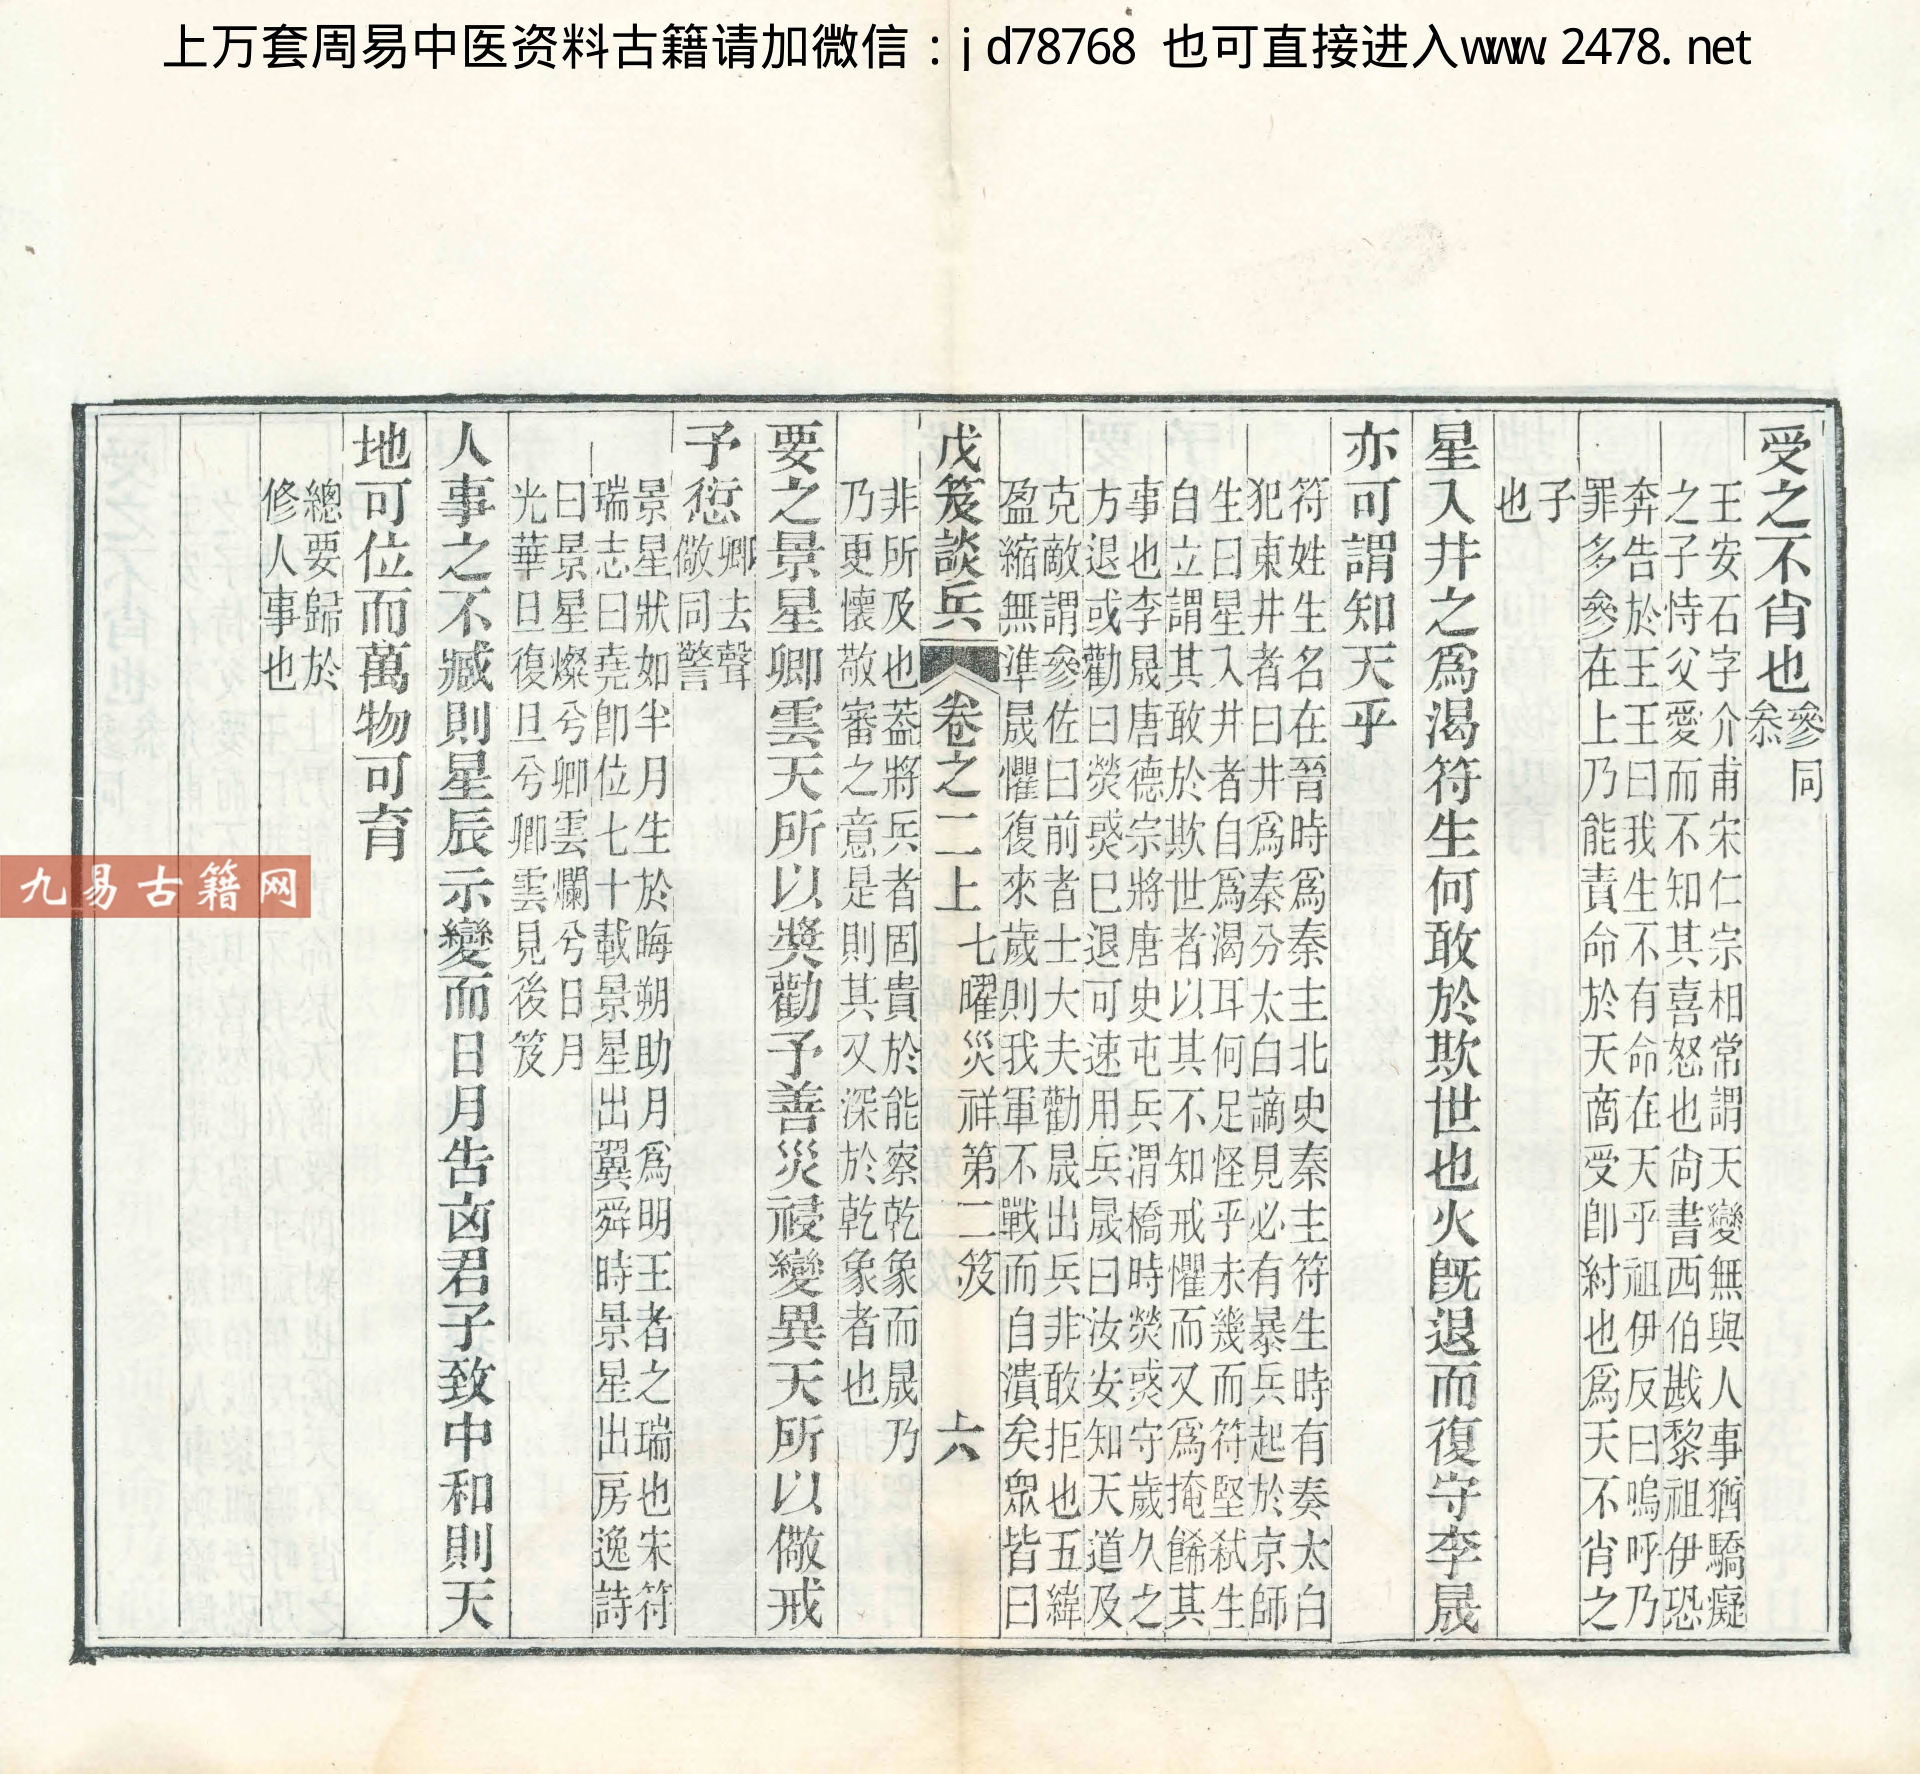 上万套周易中医资料古籍请加微信：jd78768 也可直接进入www.2478.net
受之不肖也參同叅
王安石字介甫宋仁宗相常謂天變無與人事猶驕癡
之子恃父愛而不知其喜怒也尙書西伯戡黎祖伊恐
奔告於王王曰我生不有命在天乎祖伊反曰嗚呼乃
罪多參在上乃能責命於天啇受卽紂也爲天不肖之
子
也
星入井之爲渴符生何敢於欺世也火旣退而復守李晟
亦可謂知天乎
符姓生名在晉時爲秦主北史秦主符生時有奏太白
犯東井者曰井爲秦分太白謫見必有暴兵起於京師
生曰星入井者自爲渴耳何足怪乎未幾而符堅弒生
自立謂其敢於欺世者以其不知戒懼而又爲掩餙其
事也李晟唐德宗將唐史屯兵渭橋時熒惑守歲久之
方退或勸曰熒惑已退可速用兵晟曰汝女知天道及
克敵謂參佐曰前者士大夫勸晟出兵非敢拒也五緯
盈縮無準晟懼復來歲則我軍不戰而自潰矣眾皆曰
戊笈談兵 卷之二上 七曜災祥第二笈 六
非所及也葢將兵者固貴於能察乾象而晟乃
乃更懷敬審之意是則其又深於乾象者也
要之景星卿雲天所以奬勸予善災祲變異天所以儆戒
予愆卿去聲儆同警
景星狀如半月生於晦朔助月爲明王者之瑞也宋符
瑞志曰堯卽位七十載景星出翼舜時景星出房逸詩
曰景星燦兮卿雲爛兮日月
光華旦復旦兮卿雲見後笈
人事之不臧則星辰示變而日月告凶君子致中和則天
地可位而萬物可育
總要歸於
修人事也
九易古籍网